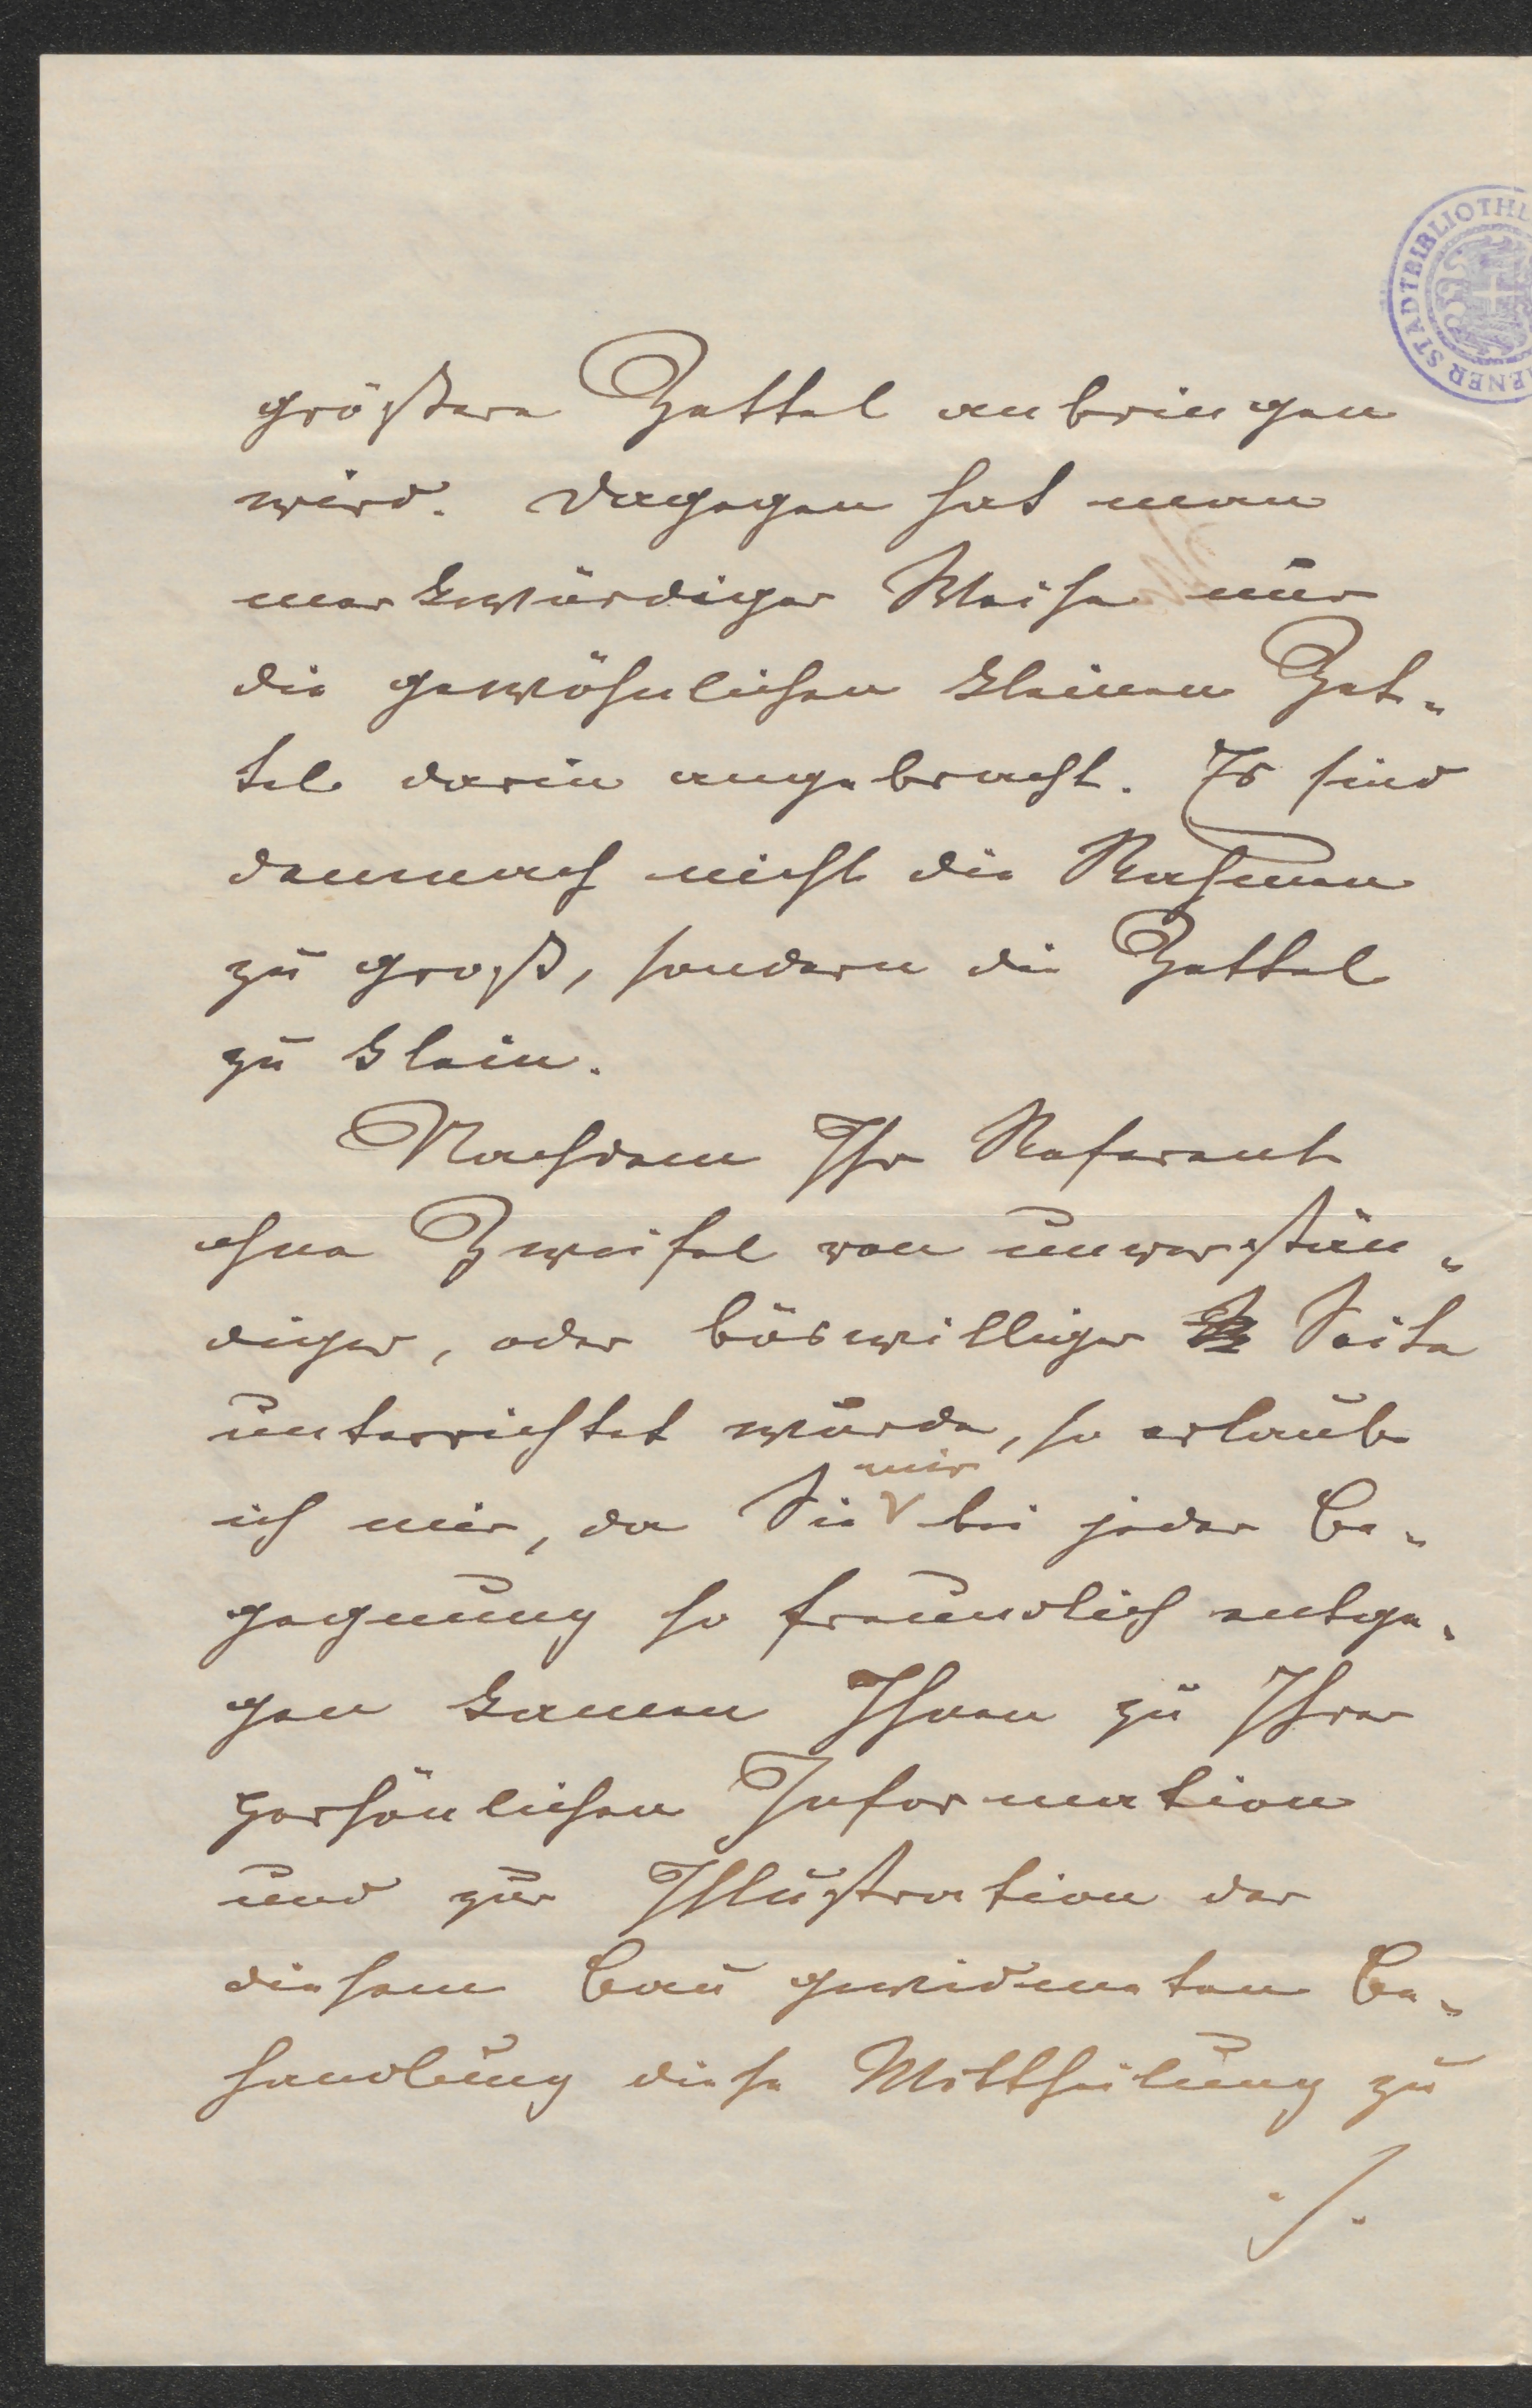 größere Zettel anbringen
wird. Dagegen hat man
merkwürdiger Weise nur
die gewöhnlichen kleinen Zet-
tel darin angebracht. Es sind
demnach nicht die Rahmen
zu groß, sondern die Zettel
zu klein.
Nachdem Ihr Referent
ohne Zweifel von unverstän-
diger, oder böswilliger Seite
unterrichtet wurde, so erlaube
ich mir, da Sie mir bei jeder Be-
gegnung so freundlich entge-
gen kamen Ihnen zu Ihrer
persönlichen Information
und zur Illustration der
diesem Bau gewidmeten Be-
handlung diese Mittheilung zu
./.
WIENER STADTBIBLIOTHE